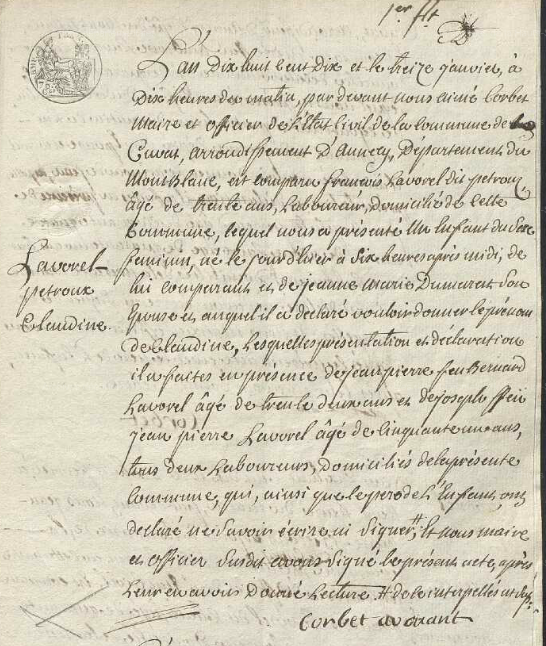 1er flt
L'an Dix huit Cent Dix et le treize janvier, à
Dix heures du matin, par devant nous aimé Corbet
Maire et officier de l'Etat Civil de la Commune de
Cuvat, arrondissement D'annecy, Departement du
Montblanc, est comparu françois Lavorel dit petroux
âgé de trente ans, Laboureur, domicilié de cette
Commune, lequel nous a présenté un Enfant du Sexe
feminin, né le jour d'hier à Six heures après midi, de
lui comparant et de jeanne Marie Dumarest Son
Epouse et auquel il a déclaré vouloir donner le prénom
de Claudine, Lesquelles présentation et déclaration
il a faites en présence de jean pierre feu Bernard
Lavorel âgé de trente deux ans et de joseph feu
jean pierre Lavorel âgé de Cinquante un ans,
tous deux Laboureurs, domiciliés de la présente
Commune, qui, ainsi que le pere de L'Enfant, ont
declaré ne Savoir écrire ni Signer #, Et nous maire
et officier Susdit avons Signé le présent acte, après
Leur en avoir Donné Lecture. # de ce interpellés
Corbet
Lavorel
petroux
Claudine.